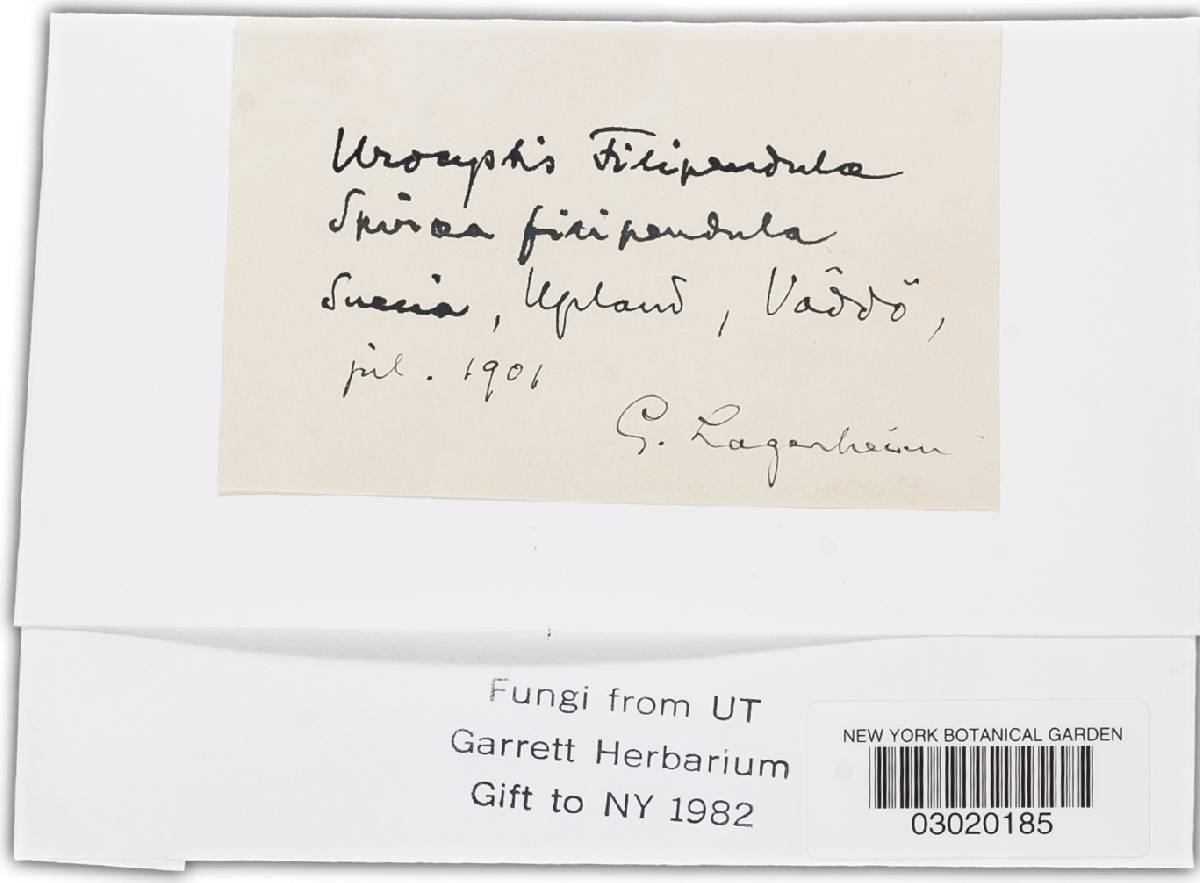 Urocystis Filipendulæ
Spiræa filipendula
Suecia, Upland, Väddö,
jul. 1901
G. Lagerheim
Fungi from UT
Garrett Herbarium
Gift to NY 1982
NEW YORK BOTANICAL GARDEN
03020185